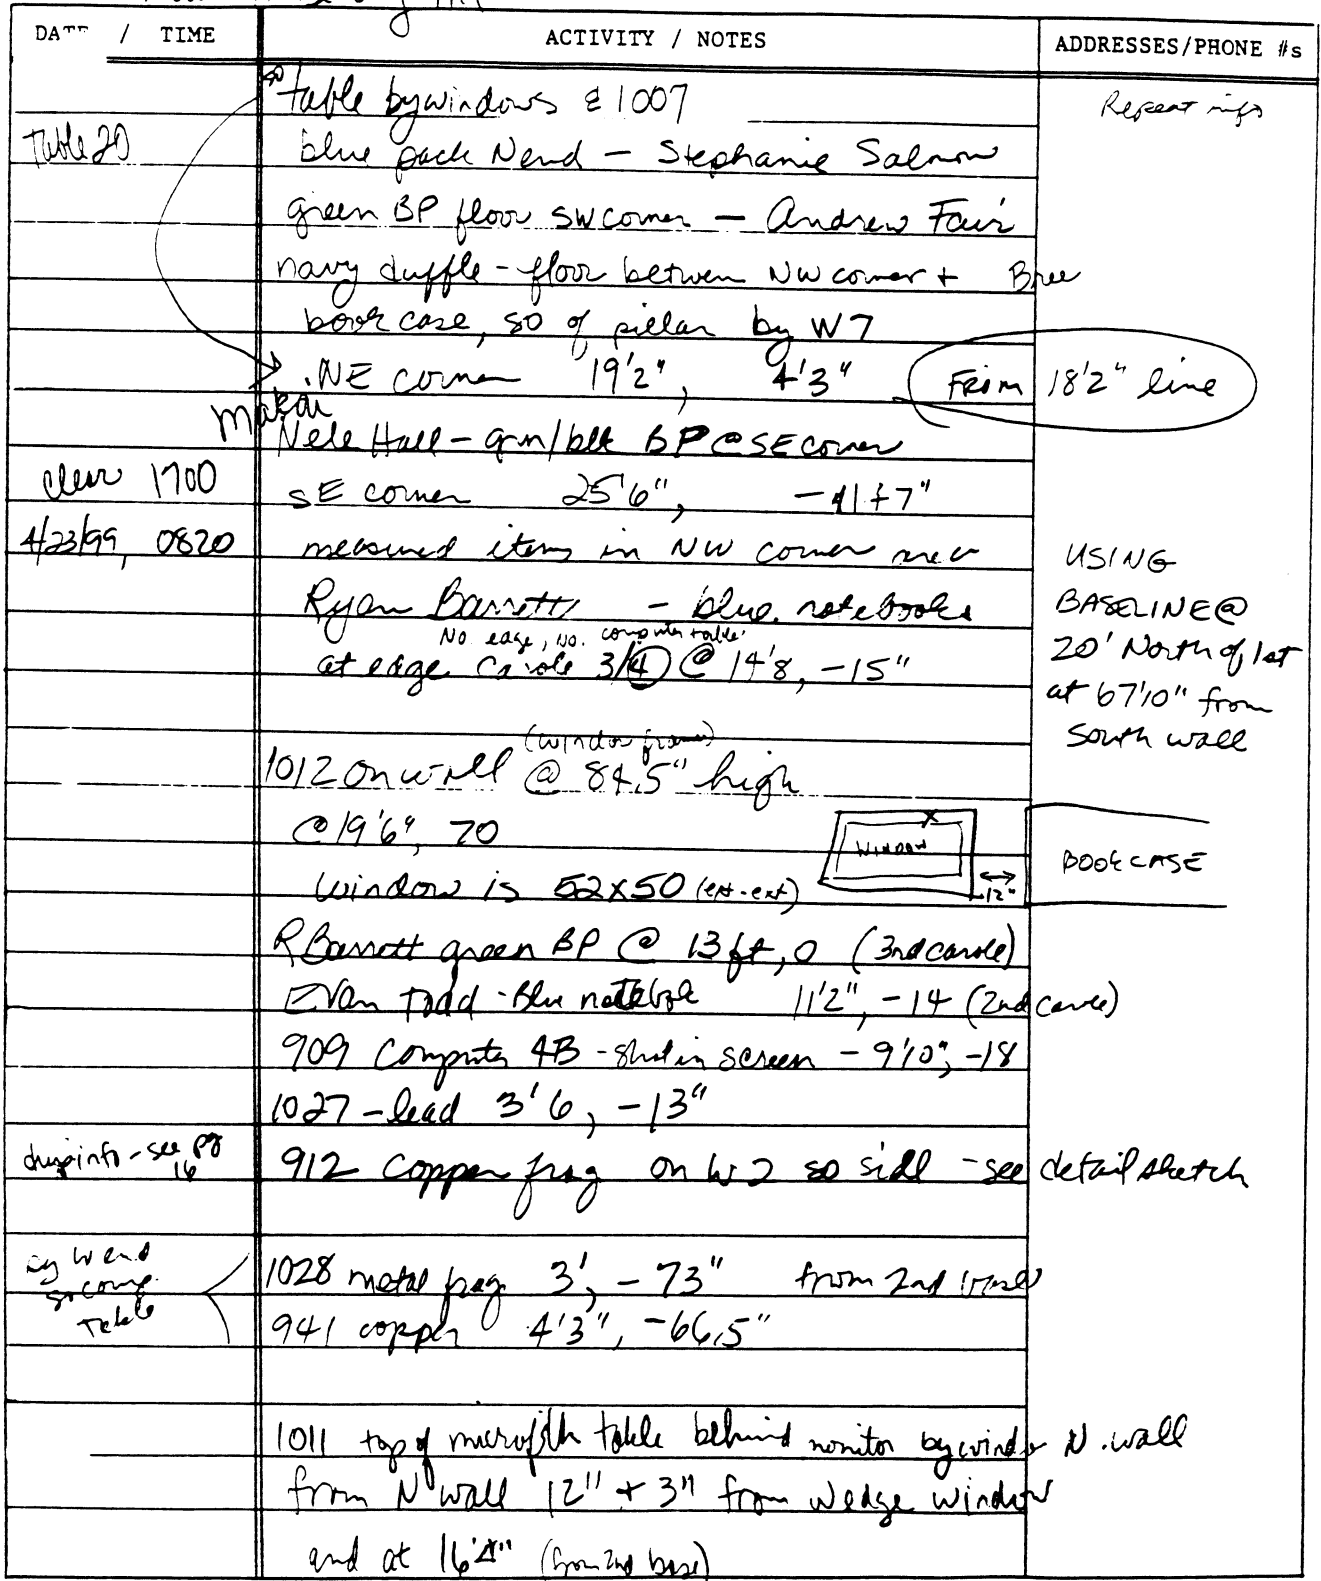 DATE / TIME ACTIVITY / NOTES ADDRESSES/PHONE #s
so table by windows & 1007 Repeat info
Table 20 blue pack N end – Stephanie Salmon
green BP floor SW corner – Andrew Fair
navy duffle - floor between NW corner + Bree
bookcase, so of pillar by W7
.NE corner 19'2", 4'3" From 18'2" line
Makai
Hall – grn/blk BP @ SE corner
clear 1700 SE corner 25'6", 7"
4/23/99, 0820 measured items in NW corner area USING
Ryan Barrett – blue notebooks BASELINE @
No. edge, No. computer table
at edge carole 3/4 @ 14'8, -15" 20' North of 1st
at 67'10" from
South wall
(window frame)
1012 on wall @ 84.5" high
@ 19'6", 70 WINDOW BOOKCASE
window is 52x50 (ext-ext) 12"
R Barrett green BP @ 13 ft, 0 (3rd carole)
Evan Todd - Blue notebook 11'2", -14 (2nd carole)
909 Computer 4B - shot in screen – 9'10", -18
1027 – lead 3'6, -13"
info - see pg
16 912 copper frag on W2 so side - see detail sketch
by W end
so comp.
Table
1028 metal frag 3', -73" from 2nd
941 copper 4'3", -66.5"
1011 top of microfich table behind monitor by window N. wall
from N wall 12" + 3" from W edge window
and at 16'4" (from 2nd base)